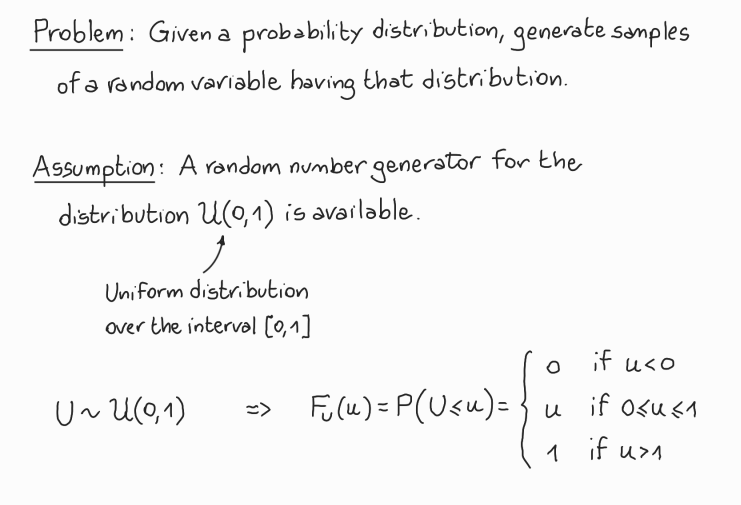 Problem: Given a probability distribution, generate samples
of a random variable having that distribution.
Assumption: A random number generator for the
distribution U(0,1) is available.
Uniform distribution
over the interval [0,1]
0 if u<0
U ~ U(0,1) => F_U(u) = P(U ≤ u) = { u if 0≤u≤1
1 if u>1